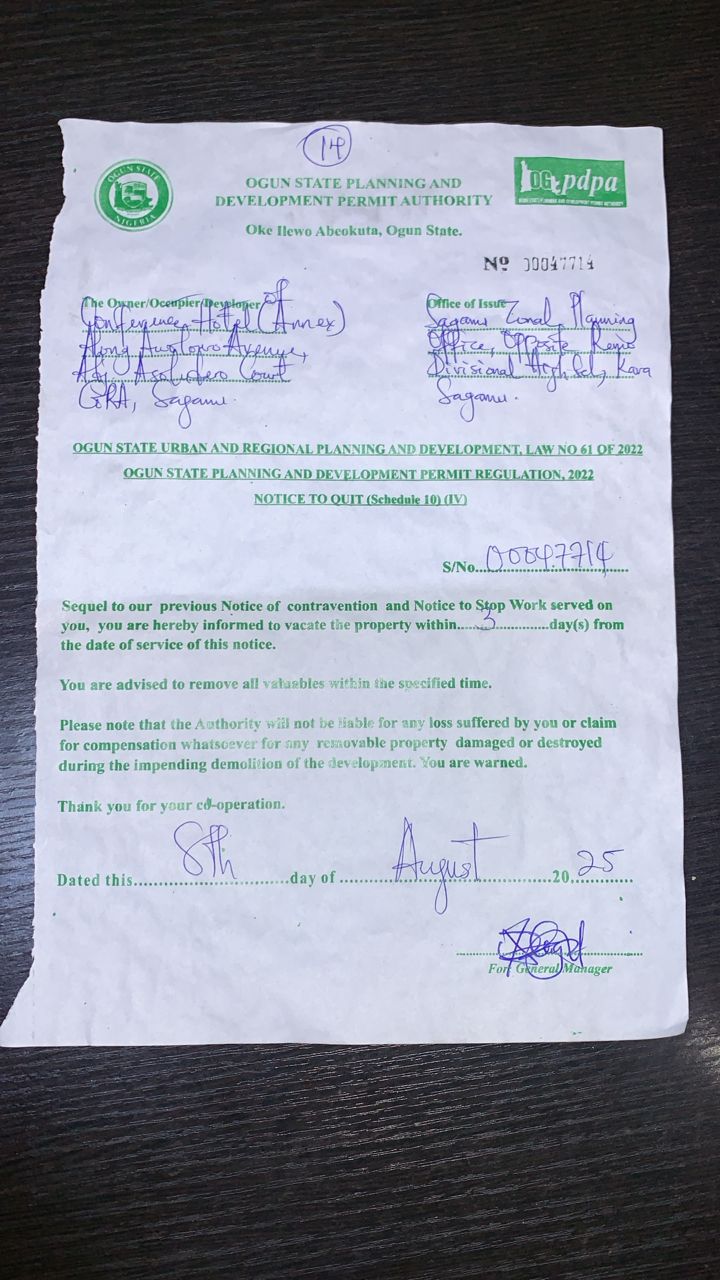 14
OGUN STATE
NIGERIA
OGUN STATE PLANNING AND
DEVELOPMENT PERMIT AUTHORITY
Oke Ilewo Abeokuta, Ogun State.
OG pdpa
OGUN STATE PLANNING AND DEVELOPMENT PERMIT AUTHORITY
Nº 00047714
The Owner/Occupier/Developer of
Conference Hotel (Annex)
Along Awolowo Avenue,
Court
GRA, Sagamu.
Office of Issue
Sagamu Zonal Planning
Office, Opposite Remo
Divisional High Sch, Kara
Sagamu.
OGUN STATE URBAN AND REGIONAL PLANNING AND DEVELOPMENT, LAW NO 61 OF 2022
OGUN STATE PLANNING AND DEVELOPMENT PERMIT REGULATION, 2022
NOTICE TO QUIT (Schedule 10) (IV)
S/No. 00047714
Sequel to our previous Notice of contravention and Notice to Stop Work served on
you, you are hereby informed to vacate the property within 3 day(s) from
the date of service of this notice.
You are advised to remove all valuables within the specified time.
Please note that the Authority will not be liable for any loss suffered by you or claim
for compensation whatsoever for any removable property damaged or destroyed
during the impending demolition of the development. You are warned.
Thank you for your co-operation.
Dated this 8th day of August 20 25
For: General Manager